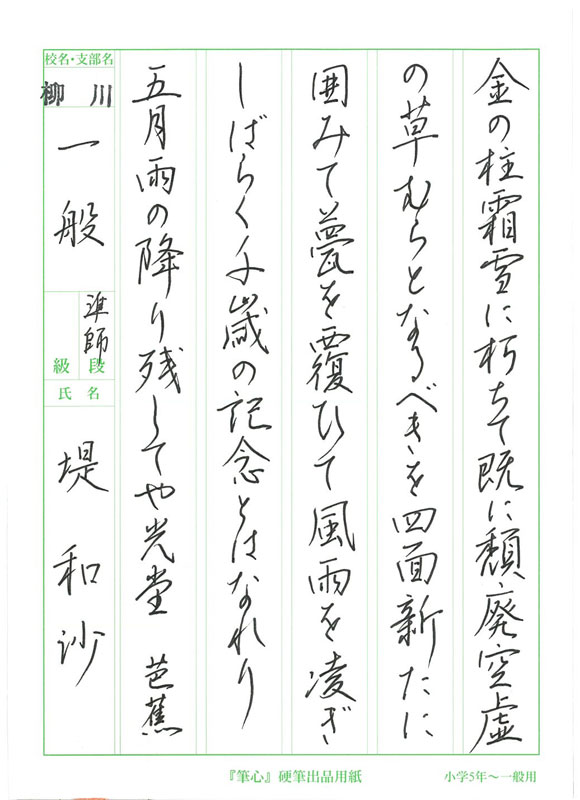 金の柱霜雪に朽ちて既に頽廃空虚
の草むらとなるべきを四面新たに
囲みて甍を覆ひて風雨を凌ぎ
しばらく千歳の記念とはなれり
五月雨の降り残してや光堂 芭蕉
校名・支部名
柳川
一般
準師
級 段
氏名
堤和沙
『筆心』硬筆出品用紙
小学5年〜一般用